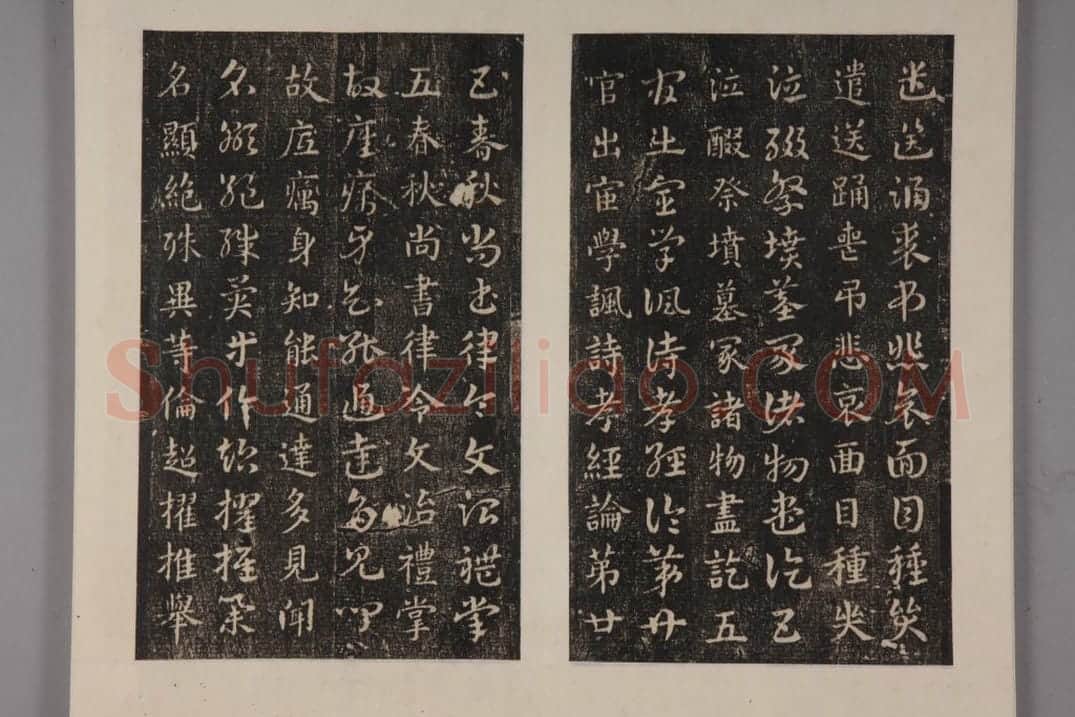 遣送踊喪弔悲哀面目種哭
遣送踊喪弔悲哀面目種哭
泣醊祭墳墓冢諸物盡訖五
泣醊祭墳墓冢諸物盡訖五
官出宦學諷詩孝經論第廿
官出宦學諷詩孝經論第廿
五春秋尚書律令文治禮掌
五春秋尚書律令文治禮掌
故癘身知能通達多見聞
故癘身知能通達多見聞
名顯絶殊異等倫超擢推舉
名顯絶殊異等倫超擢推舉
Shufaziliao.COM